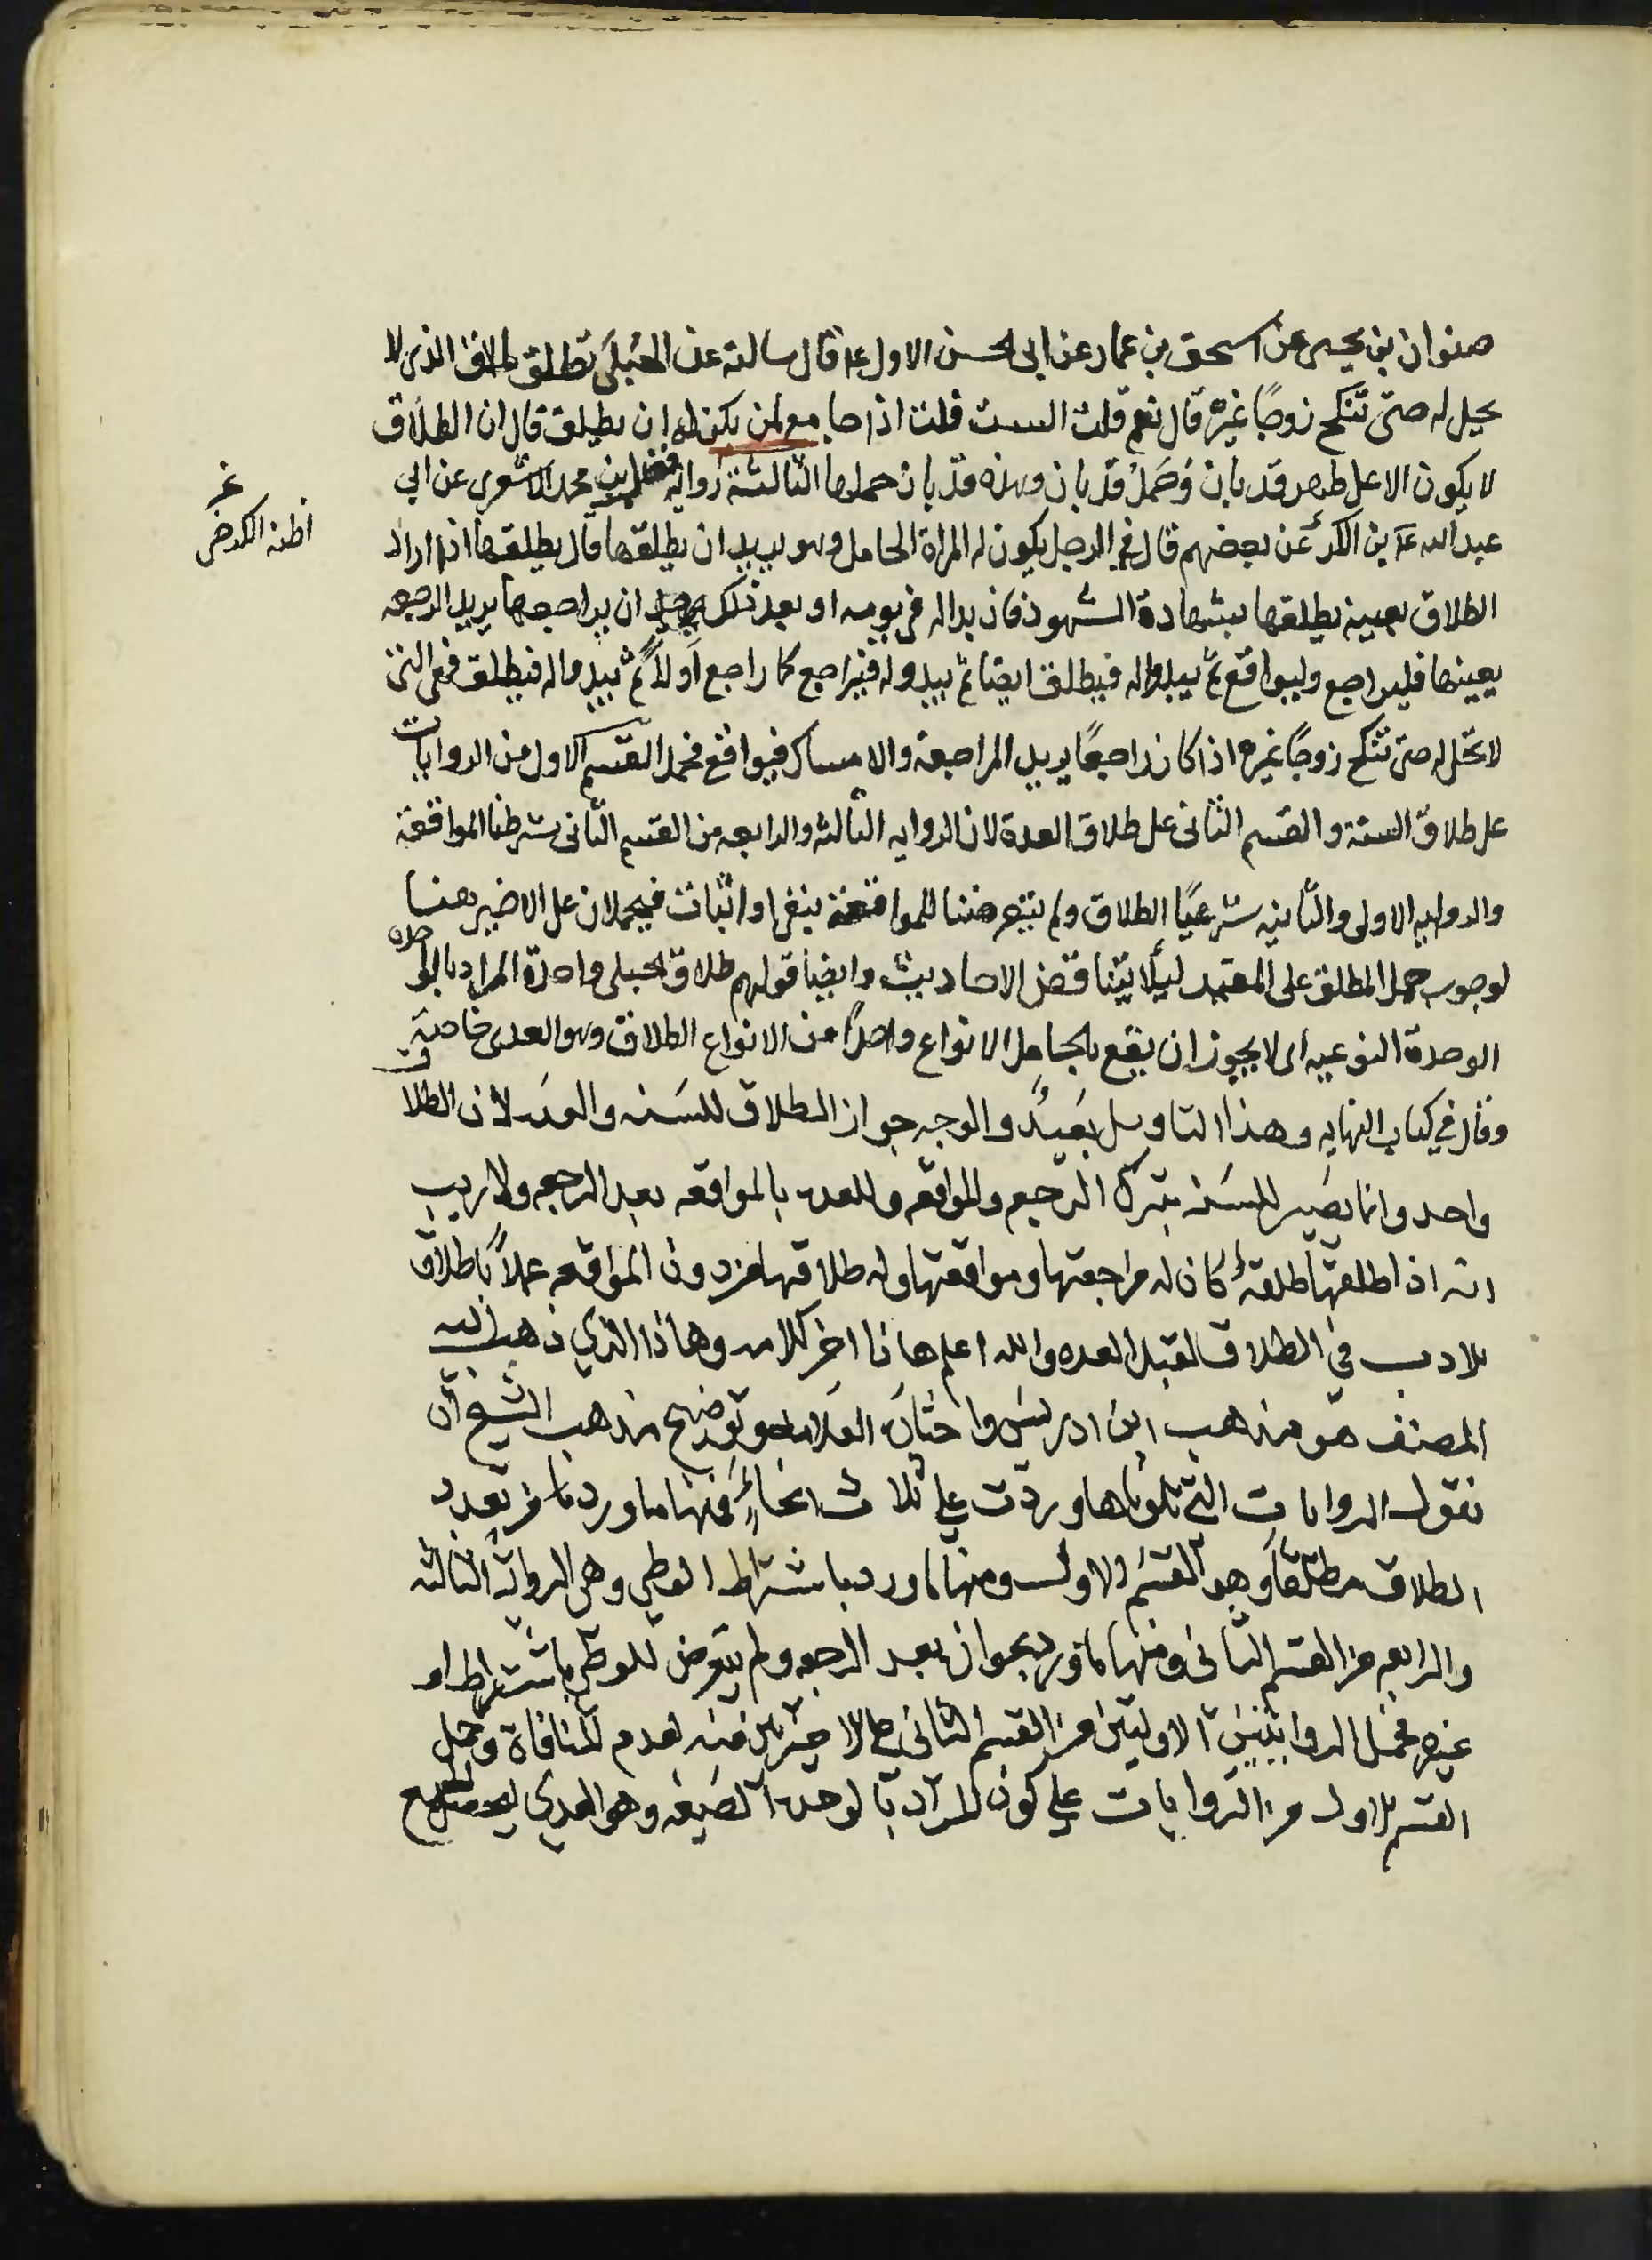 صفوان بن يحيى عن اسحق بن عمار عن ابى الحسن الاول ع قال سالته عن الحبلى تطلق الطلاق الذى لا
يحل له حتى تنكح زوجًا غيره قال نعم قلت الست قلت اذا جامع لمن يكن له ان يطلق قال ان الطلاق
لا يكون الا على طهر قد بان وحمل قد بان وهذه قد بان حملها الثالثة رواية محمد الاشعرى عن ابى
عبد الله بن الكر عن بعضهم قال فى الرجل يكون له المراة الحامل وهو يريد ان يطلقها قال يطلقها اذا اراد
الطلاق بعينه يطلقها بشهادة الشهود فان بدا له فى يومه او بعد ذلك ان يراجعها يريد الرجعه
بعينها فليراجع وليواقع ثم يبدوا له فيطلق ايضا ثم يبدو له فيراجع كما راجع اولاً ثم يبدوا له فيطلق فهى التى
لا تحل له حتى تنكح زوجًا غيره اذا كان راجعًا يريد المراجعة والامساك فيواقع فحمل القسم الاول من الروايات
على طلاق السنة والقسم الثانى على طلاق العدة لان الروايه الثالثه والرابعه من القسم الثانى شرطنا المواقعة
والروايه الاولى والثانيه شرعيًا الطلاق ولم يتعرضنا للمواقعة بنفى او اثبات فيحملان على الاخيرهنا
لوجوب حمل المطلق على المقيد ليلا يتناقض الاحاديث وايضا قولهم طلاق الحبلى واحدة المراد بالوحده
الوحدة النوعيه اى لا يجوز ان يقع بالحامل الانواع واحدًا من الانواع الطلاق وهو العدى خاصة
وقال فى كتاب النهايه وهذا التاويل بعيدٌ والوجه جواز الطلاق للسنه والعده لان الطلاق
واحد وانما يصير للسنه بترك الرجعه والمواقعه وللعده بالمواقعه بعد الرجعه ولا ريب
انه اذا طلقها طلقةً كان له مراجعتها ومواقعتها وله طلاقها من دون المواقعه عملاً باطلاق
بلا ريب فى الطلاق لقبل العده والله اعلم هاذا اخر كلامه وهاذا الذي ذهب اليه
المصنف هو مذهب ابن ادريس واختاره العلامه وتوضيح مذهب الشيخ ان
نقول الروايات التى تلوناها وردت على ثلاث انحاءٍ فمنها ما ورد من تعدد
الطلاق مطلقًا وهو القسم الاول ومنها ما ورد باشتراط الوطي وهى الرواية الثالثه
والرابعه من القسم الثانى ومنها ما ورد بجواز بعد الرجعه ولم يتعرض للوطي باشتراط او
غيره فحمل الروايتين الاوليتين من القسم الثانى على الاخيرتين منه لعدم المنافاة وحمل
القسم الاول من الروايات على كون المراد بالوحده الصيغه وهو العدي ليحصل
اظنه الكرخى